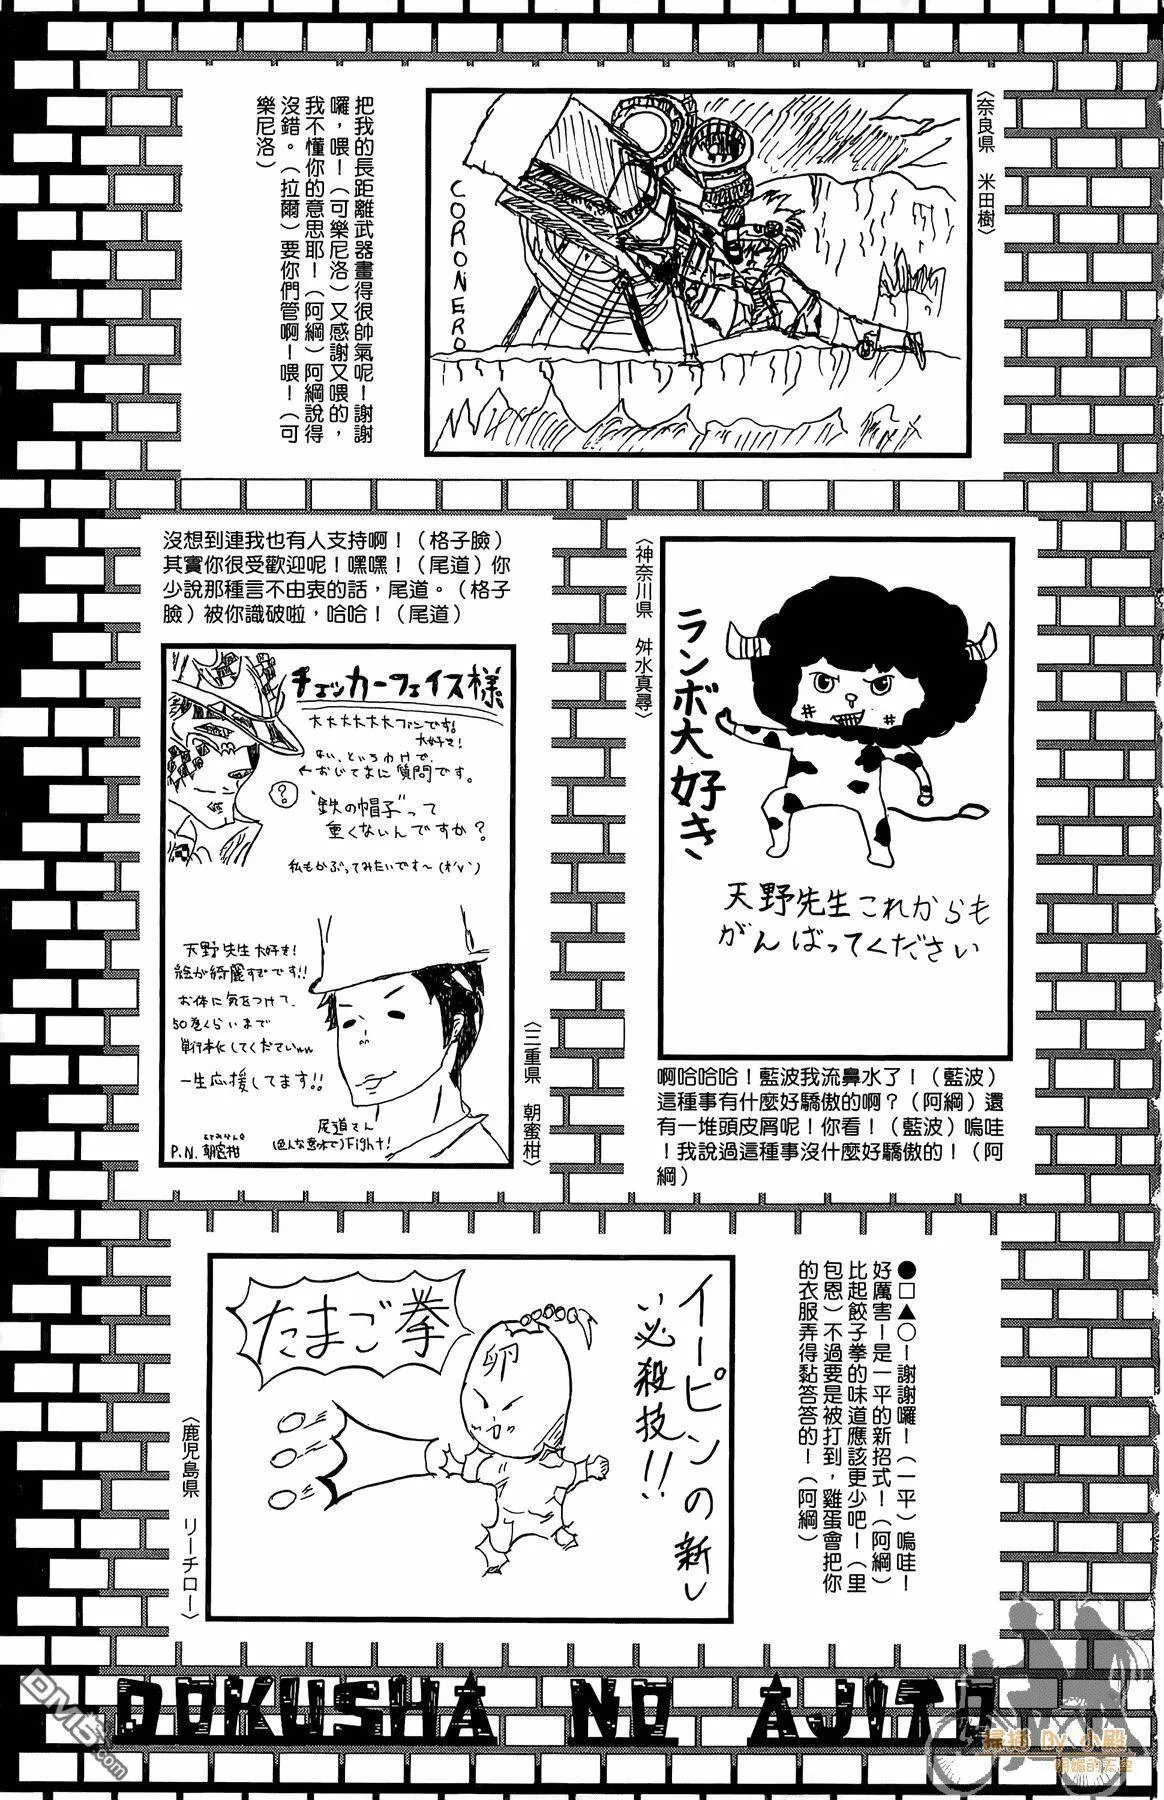 〈奈良県　米田樹〉
CORONERO
把我的長距離武器畫得很帥氣呢！謝謝
囉，喂！（可樂尼洛）又感謝又喂的，
我不懂你的意思耶！（阿綱）阿綱說得
沒錯。（拉爾）要你們管啊！喂！（可
樂尼洛）
〈神奈川県　舛水真尋〉
ランボ大好き
天野先生これからも
がんばってください
啊哈哈哈！藍波我流鼻水了！（藍波）
這種事有什麼好驕傲的啊？（阿綱）還
有一堆頭皮屑呢！你看！（藍波）嗚哇
！我說過這種事沒什麼好驕傲的！（阿
綱）
沒想到連我也有人支持啊！（格子臉）
其實你很受歡迎呢！嘿嘿！（尾道）你
少說那種言不由衷的話，尾道。（格子
臉）被你識破啦，哈哈！（尾道）
チェッカーフェイス様
大大大大大大ファンです!
大好き!
はい、というわけで、
←おじさまに質問です。
?
"鉄の帽子"って
重くないんですか?
私もかぶってみたいです〜
天野先生大好き!
絵が綺麗すぎです!!
お体に気をつけて、
50巻くらいまで
単行本化してくださいww
一生応援してます!!
尾道さん
(色んな意味で)Fight!
P.N. 朝蜜柑
〈三重県　朝蜜柑〉
●□▲○！謝謝囉！（一平）嗚哇！
好厲害！是一平的新招式！（阿綱）
比起餃子拳的味道應該更少吧！（里
包恩）不過要是被打到，雞蛋會把你
的衣服弄得黏答答的！（阿綱）
イーピンの新しい必殺技!!
たまご拳
卵
〈鹿児島県　リーチロー〉
DOKUSHA NO AJITO
掃描 By 小殿
明媚的天空